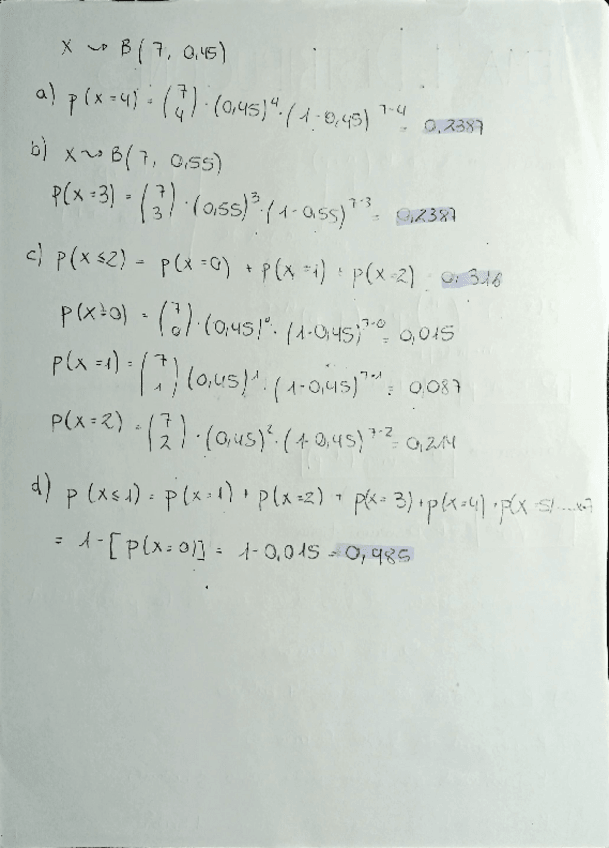 X ~> B(7, 0,45)
a) p(x=4) = (7 4) · (0,45)^4 · (1-0,45)^7-4 = 0,2387
b) X ~> B(7, 0,55)
P(x=3) = (7 3) · (0,55)^3 · (1-0,55)^7-3 = 0,2387
c) p(x≤2) = p(x=0) + p(x=1) + p(x=2) = 0,316
p(x=0) = (7 0) · (0,45)^0 · (1-0,45)^7-0 = 0,015
p(x=1) = (7 1) (0,45)^1 · (1-0,45)^7-1 = 0,087
p(x=2) = (7 2) · (0,45)^2 · (1-0,45)^7-2 = 0,214
d) p(x≤1) = p(x=1) + p(x=2) + p(x=3) + p(x=4) + p(x=5) ... x=7
= 1-[p(x=0)] = 1-0,015 = 0,985